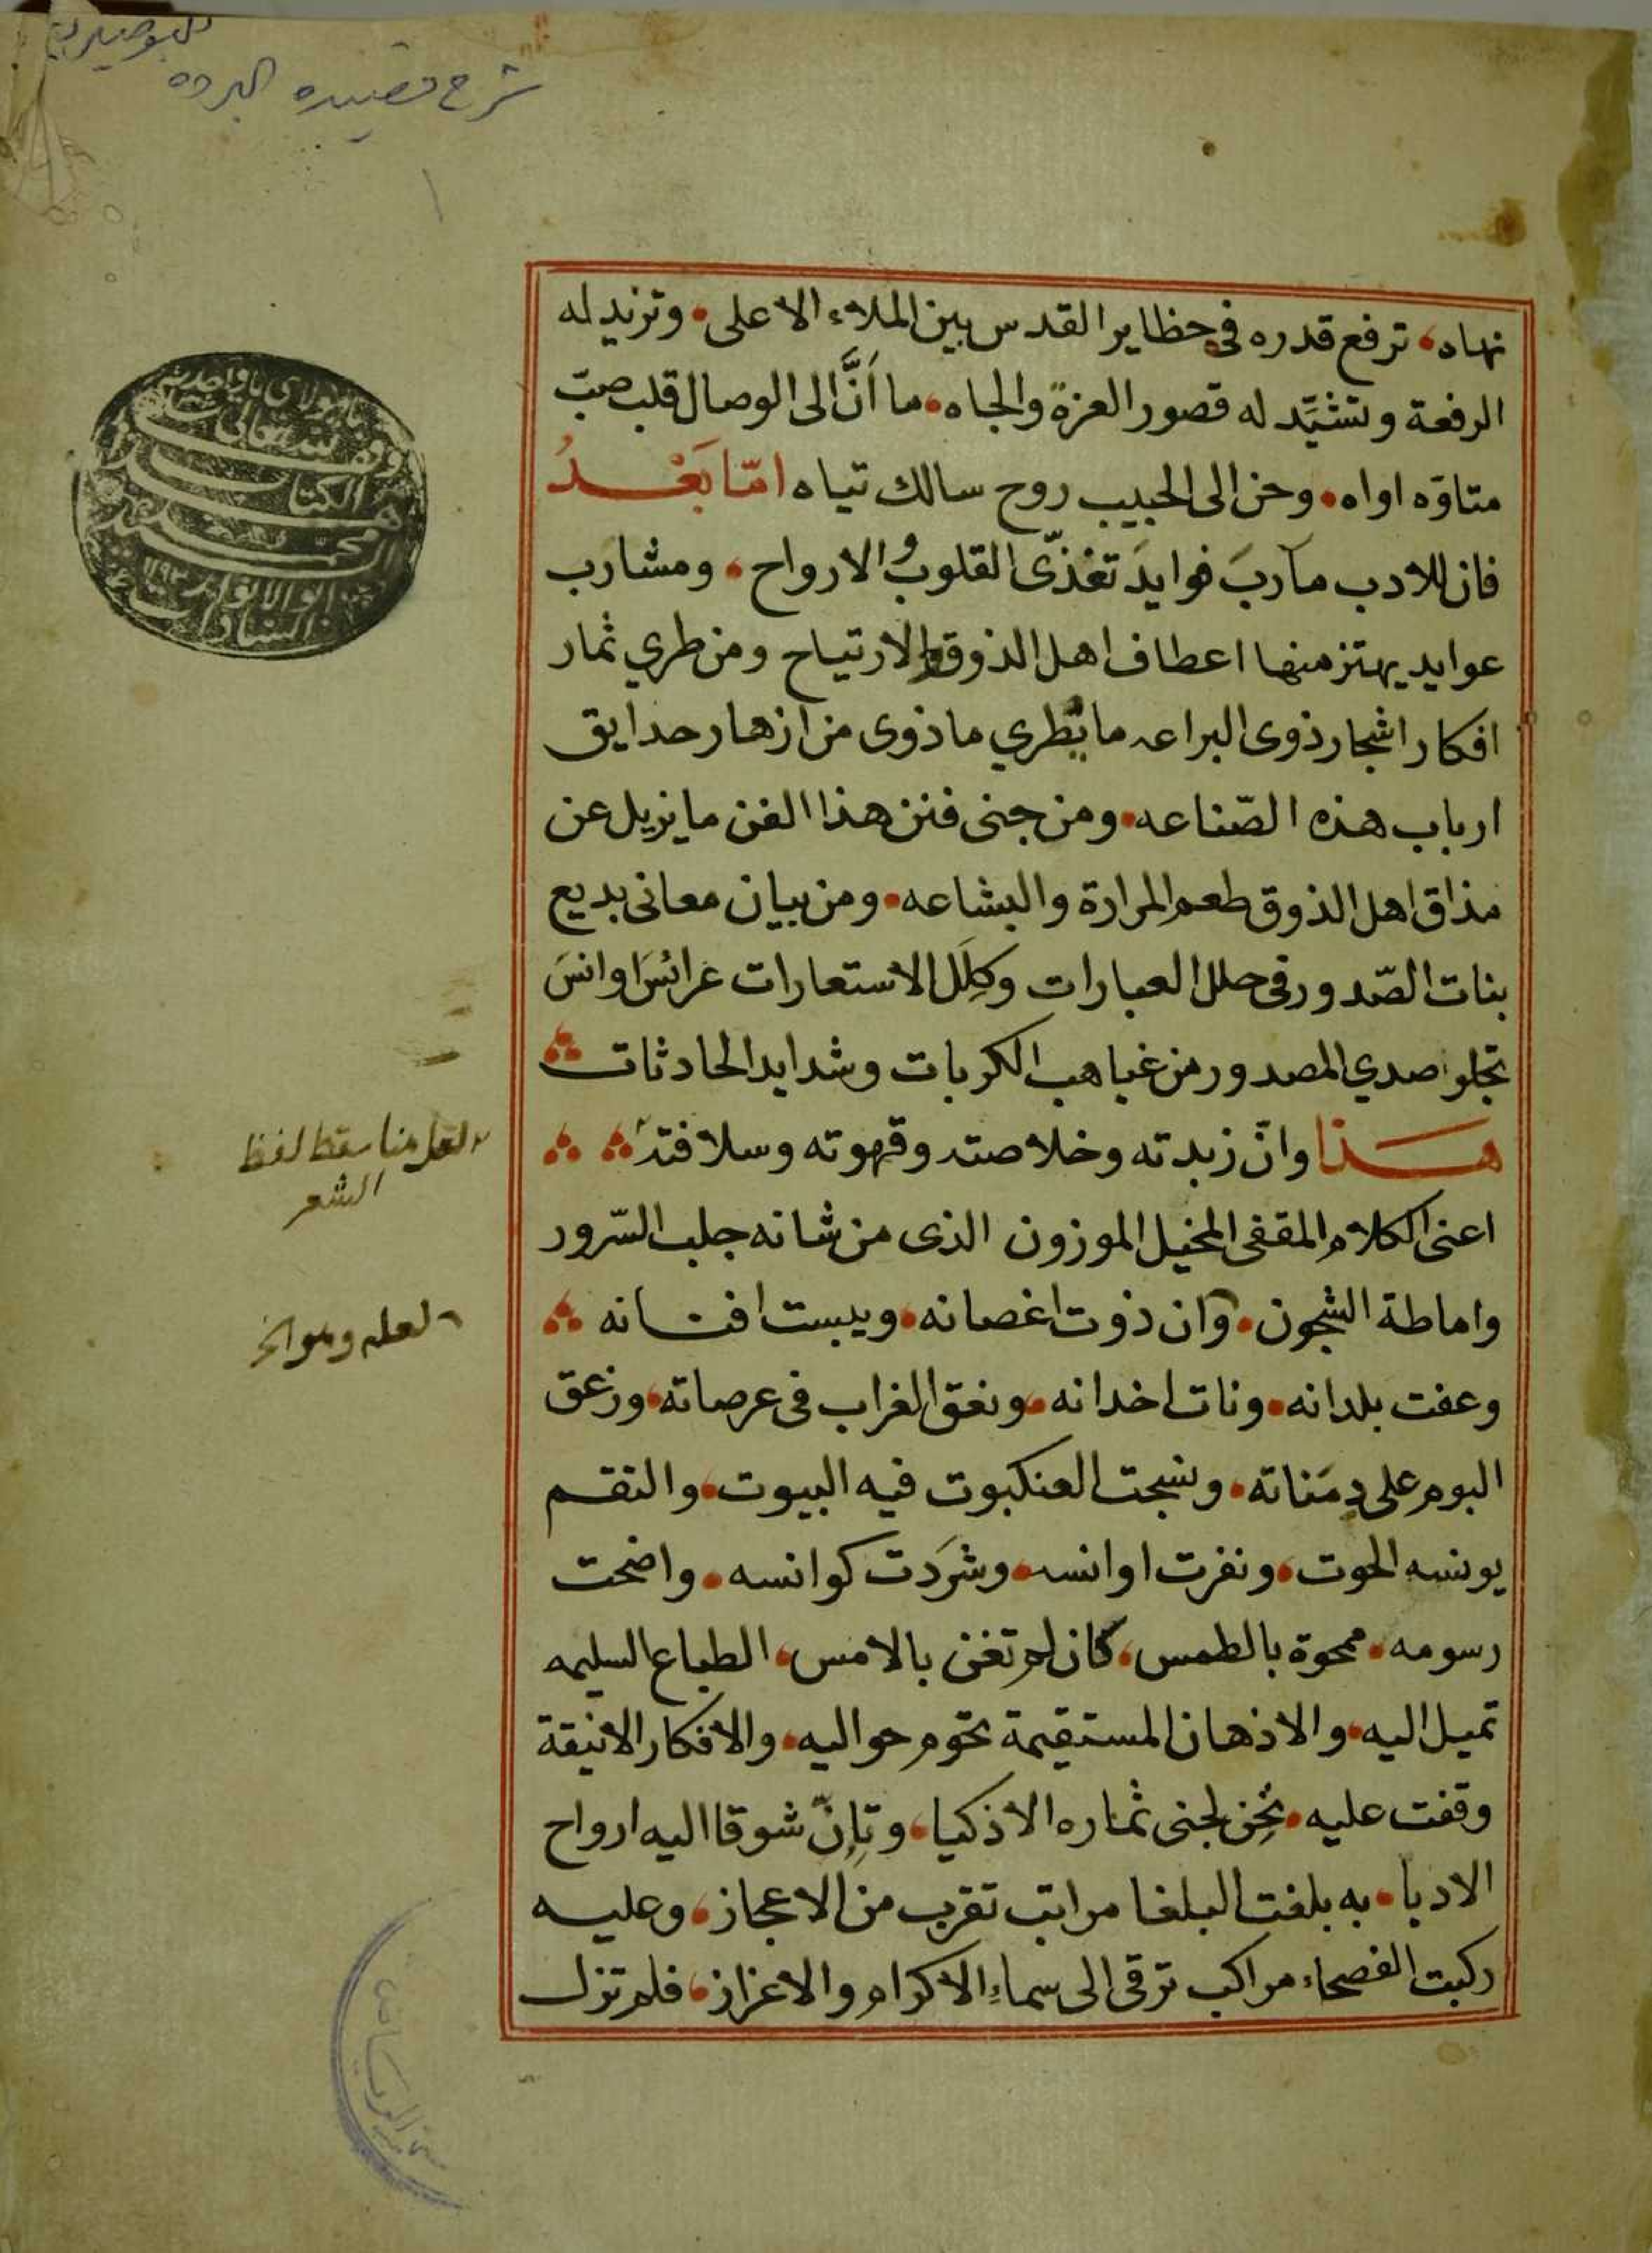 للبوصيري
شرح قصيده البرده
١
نهاه، ترفع قدره في حظاير القدس بين الملاء الاعلى. وتزيد له
الرفعة وتشيّد له قصور العزة والجاه. ما أَنَّ الى الوصال قلب صبّ
متاوّه اواه. وحن الى الحبيب روح سالك تياه امّا بَعْدُ
فان للادب مآربَ فوايدَ تغذّى القلوبُ والارواح، ومشارب
عوايد يهتز منها اعطاف اهل الذوق والارتياح ومن طري ثمار
افكار اشجار ذوى البراعه ما يُطري ما ذوى من ازهار حدايق
ارباب هذه الصّناعه. ومن جنى فنن هذا الفن ما يزيل عن
مذاق اهل الذوق طعم المرارة والبشاعه. ومن بيان معانى بديع
بنات الصّدور فى حلل العبارات وكِلَل الاستعارات عرائسَ اوانسَ
تجلو صدي المصدور من غياهب الكربات وشدايد الحادثات
هَذا وانّ زبدته وخلاصته وقهوته وسلافته
اعنى الكلام المقفى المخيل الموزون الذى من شانه جلب السّرور
واماطة الشجون. وان ذوت اغصانه. ويبست افنانه
وعفت بلدانه. ونات اخدانه. ونعق الغراب فى عرصاته، وزعق
البوم على دِمَناته. ونسجت العنكبوت فيه البيوت، والتقم
يونسه الحوت، ونفرت اوانسه. وشرَدت كوانسه. واضحت
رسومه. ممحوة بالطمس، كان لم تغن بالامس، الطباع السليمه
تميل اليه. والاذهان المستقيمة تحوم حواليه. والافكار الانيقة
وقفت عليه. تحِن لجنى ثماره الاذكيا، وتإنّ شوقا اليه ارواح
الادبا. به بلغت البلغا مراتب تقرب من الاعجاز، وعليه
ركبت الفصحاء مراكب ترقى الى سماءِ الاكرام والاعزاز، فلم تزل
لعل هنا سقط لفظ
الشعر
لعله وهو الخ
وقف لله تعالى
هذا الكتاب
محمد
ابو الانوار
السادات